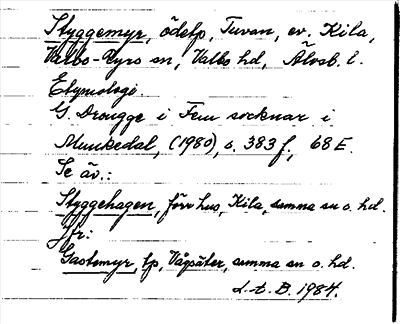 Styggemyr, ödetp, Tuvan, ev. Kila,
Valbo-Ryrs sn, Valbo hd, Älvsb. l.
Etymologi.
G. Drougge i Fem socknar i
Munkedal, (1980), s. 383 f, 68 E.
Se äv.:
Styggehagen, förr hus, Kila, samma sn o. hd.
Jfr:
Gastemyr, tp, Vågsäter, samma sn o. hd.
L-t. B. 1984.